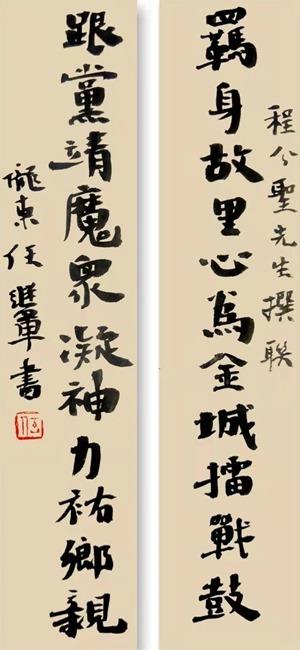 羈身故里心為金城擂戰鼓
程聖先生撰联
跟黨靖魔眾凝神力祐鄉親
隴東任继軍書